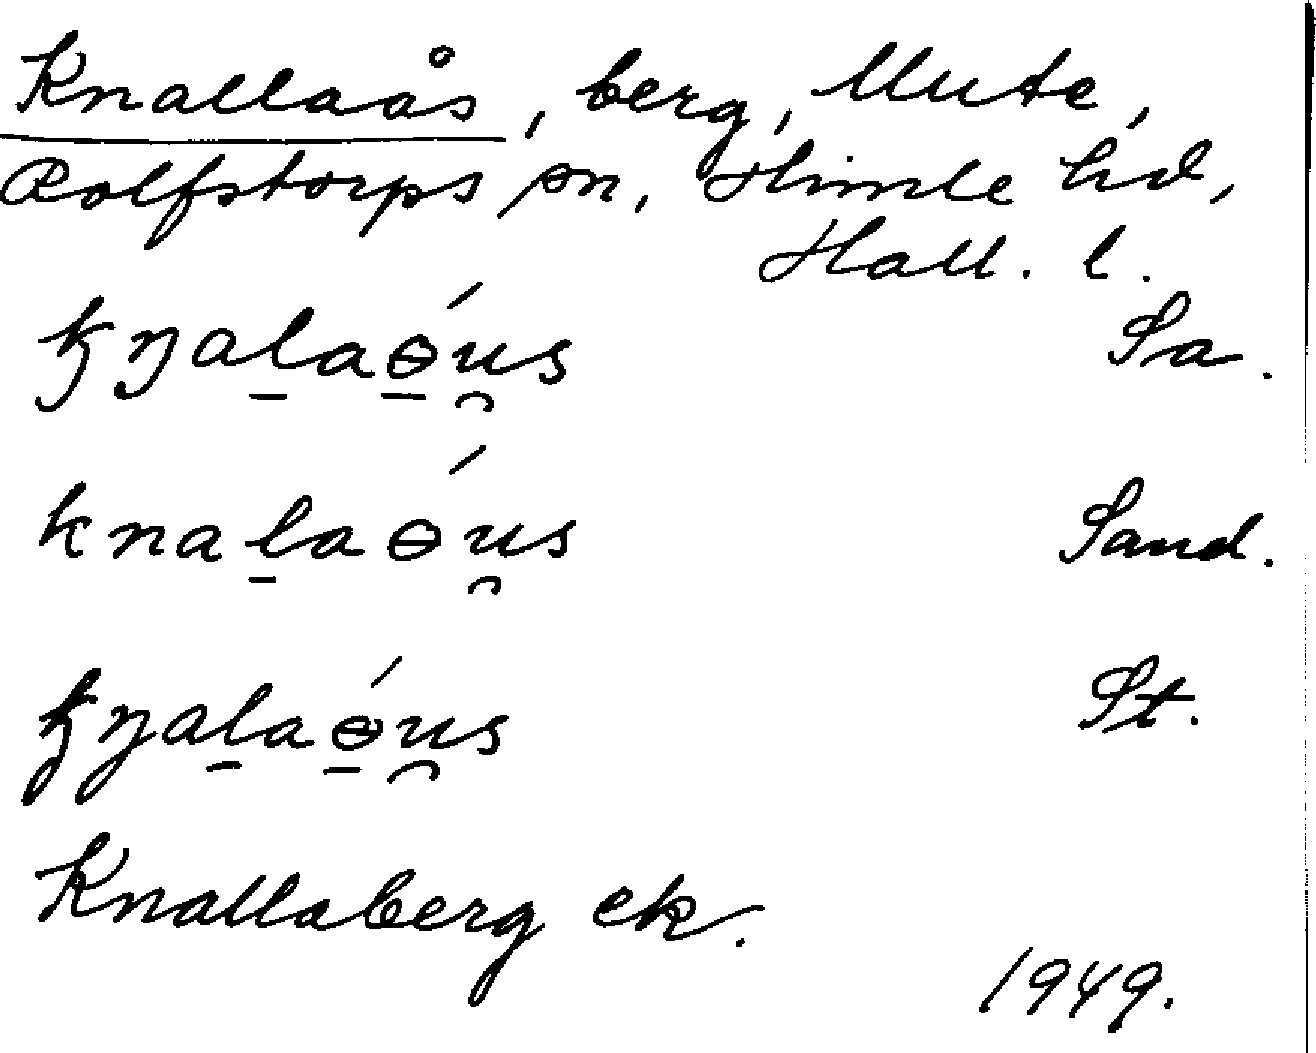 Knallaås, berg, Mute,
Rolfstorps sn, Himle hd,
Hall. l.
Sa.
knalaɵus Sand.
St.
Knallaberg ek.
1949.